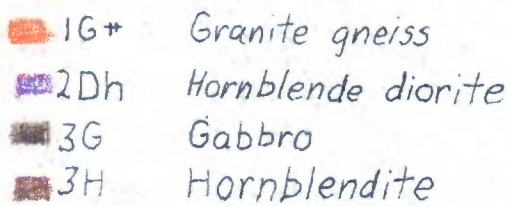 1G# Granite gneiss
2Dh Hornblende diorite
3G Gabbro
3H Hornblendite